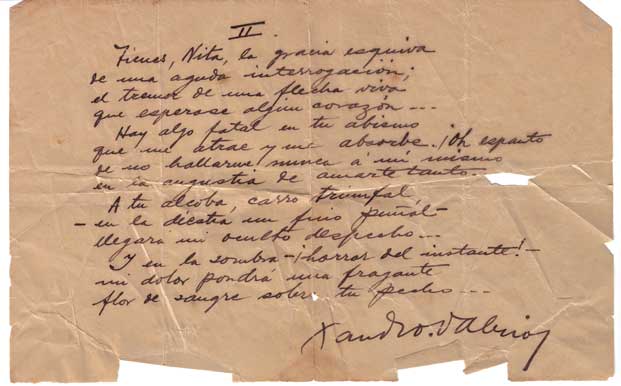 II.
Tienes, Nita, la gracia esquiva
de una aguda interrogación;
el tremor de una flecha viva
que esperase algún corazón...
Hay algo fatal en tu abismo
que me atrae y me absorbe. ¡Oh espanto
de no hallarme nunca á mi mismo
en la angustia de amarte tanto.
A tu alcoba, carro triunfal
- en la diestra un fino puñal-
llegará mi oculto despecho...
Y en la sombra -¡horror del instante!-
mi dolor pondrá una fragante
flor de sangre sobre tu pecho...